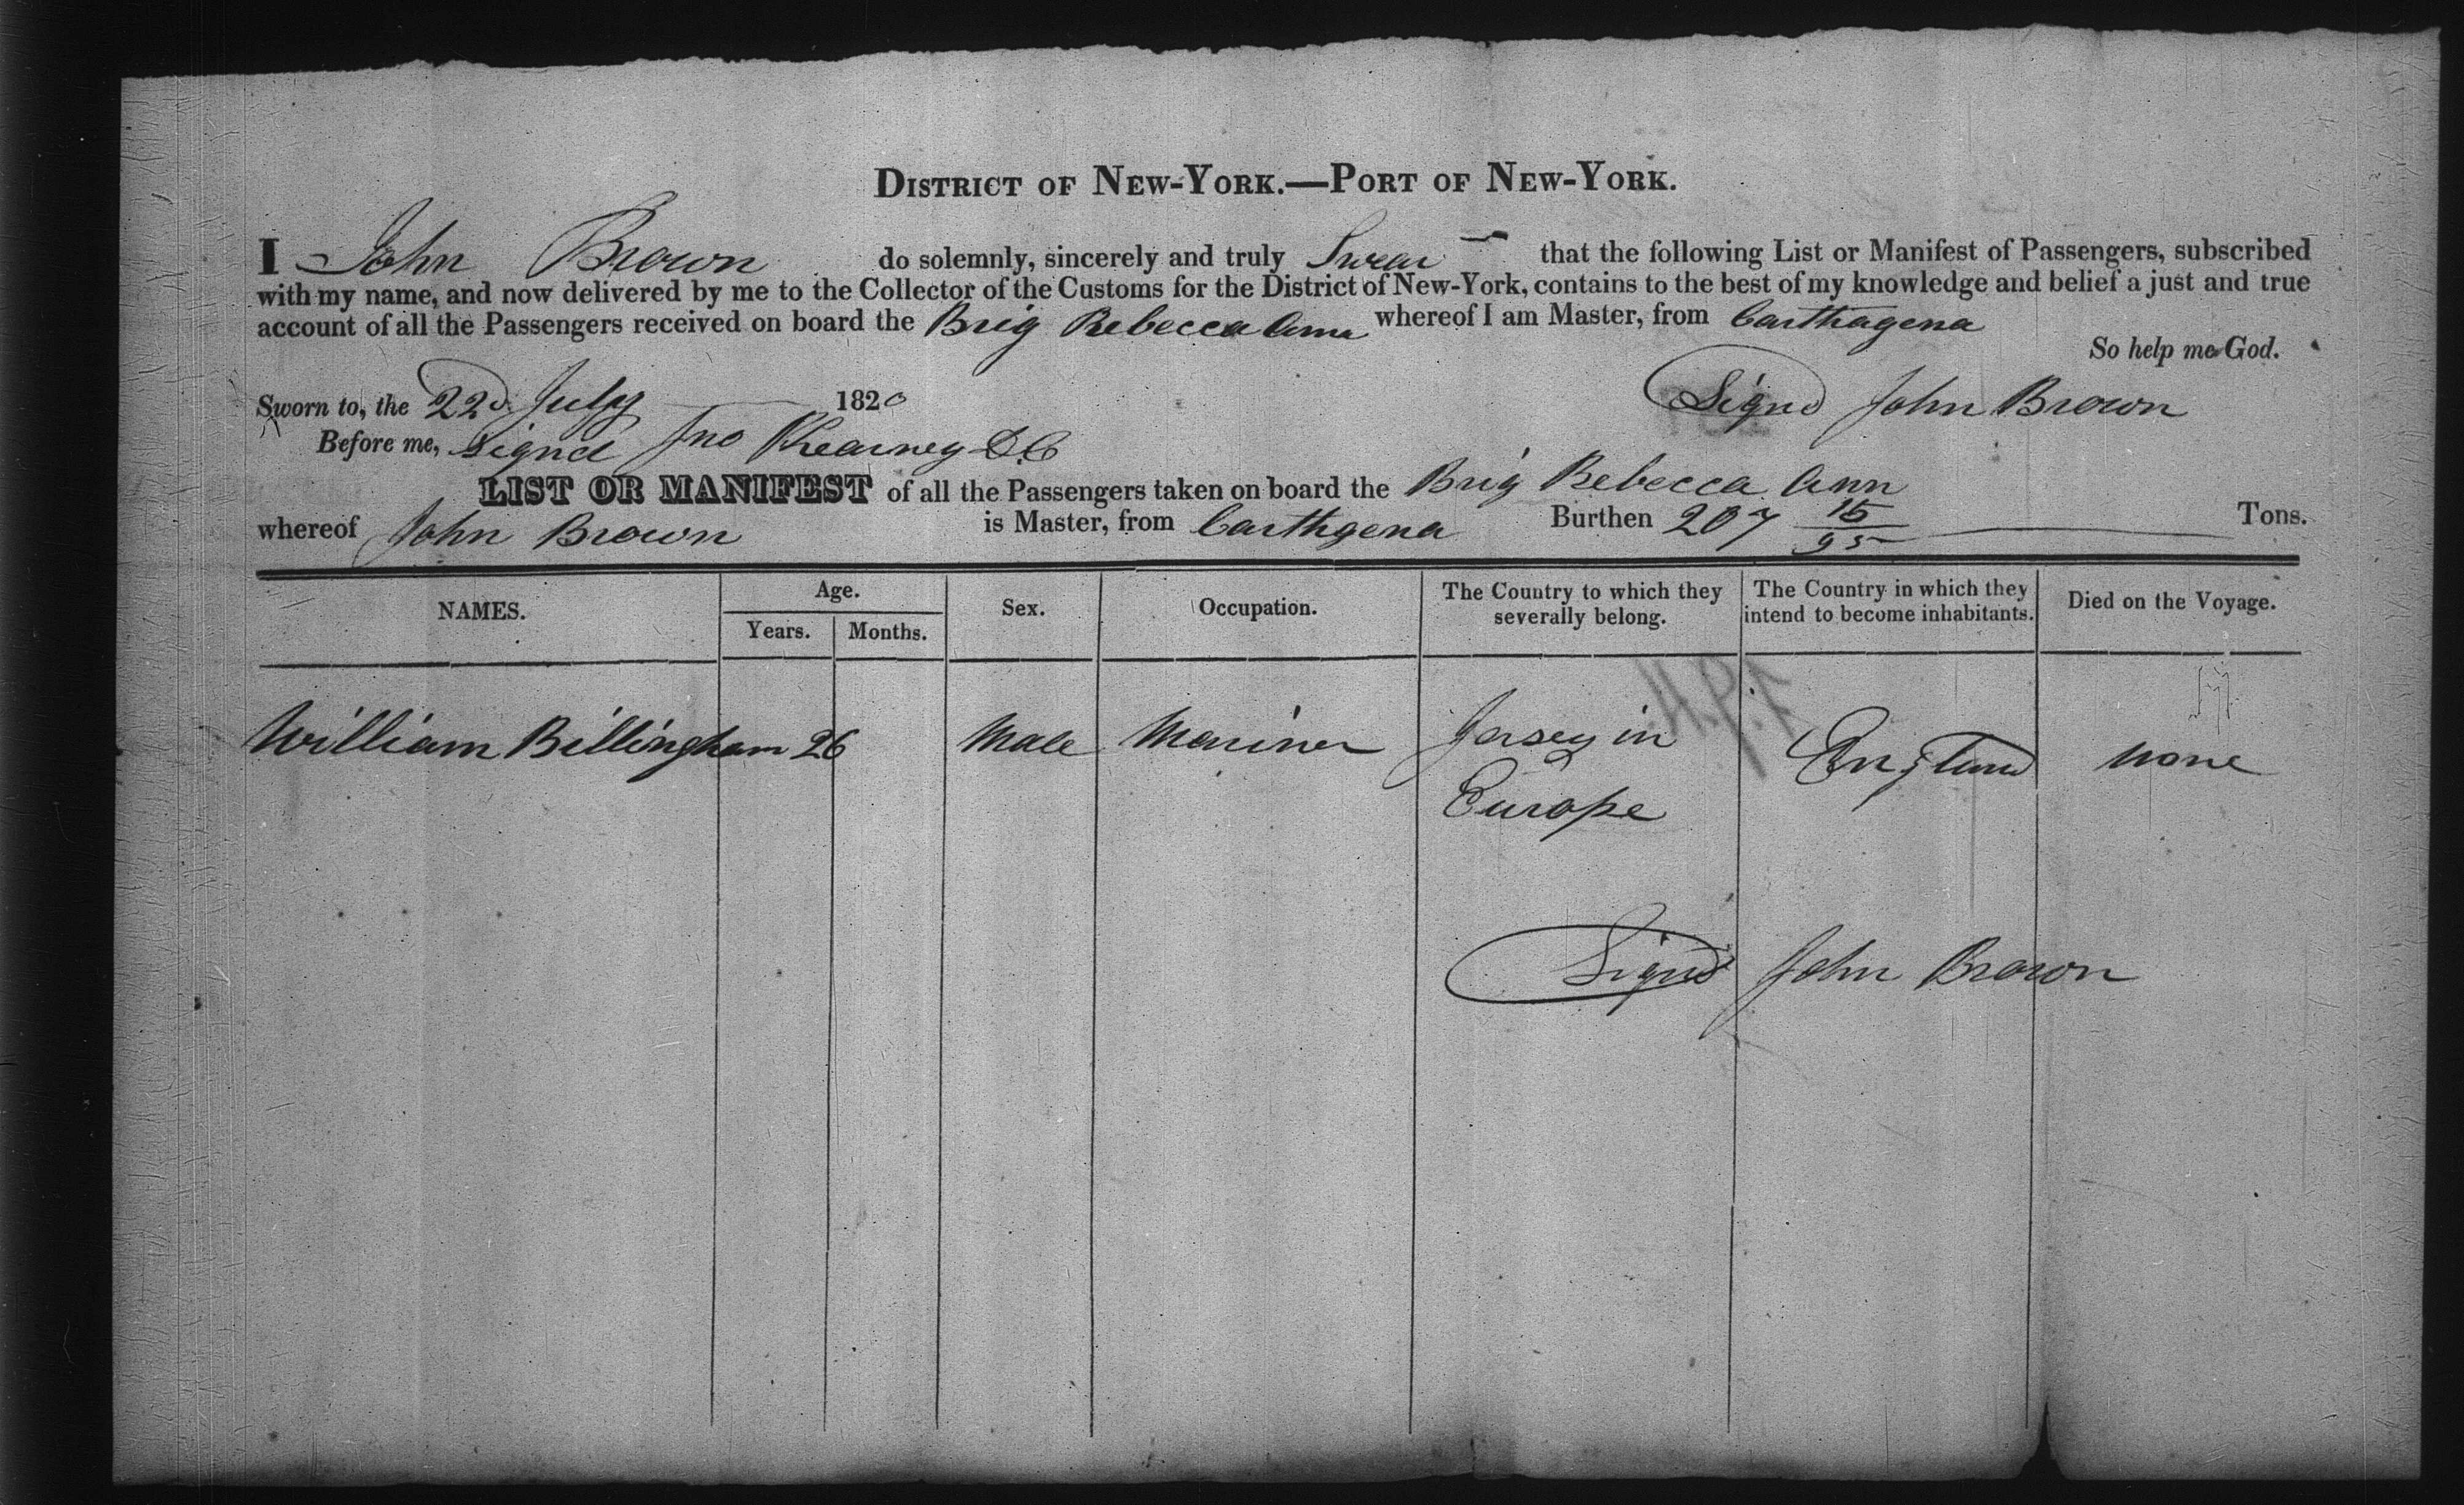 DISTRICT OF NEW-YORK.—PORT OF NEW-YORK.
I John Brown do solemnly, sincerely and truly Swear that the following List or Manifest of Passengers, subscribed
with my name, and now delivered by me to the Collector of the Customs for the District of New-York, contains to the best of my knowledge and belief a just and true
account of all the Passengers received on board the Brig Rebecca Ann whereof I am Master, from Carthagena
So help me God.
Sworn to, the 22d July 1820 Signd John Brown
Before me, Signd Jno Kearney D.C
LIST OR MANIFEST of all the Passengers taken on board the Brig Rebecca Ann
whereof John Brown is Master, from Carthgena Burthen 207 15/95 Tons.
NAMES. Age. Years. Months. Sex. Occupation. The Country to which they severally belong. The Country in which they intend to become inhabitants. Died on the Voyage.
William Billingham 26 Male Mariner Jersey in England none
Europe
Signd John Brown